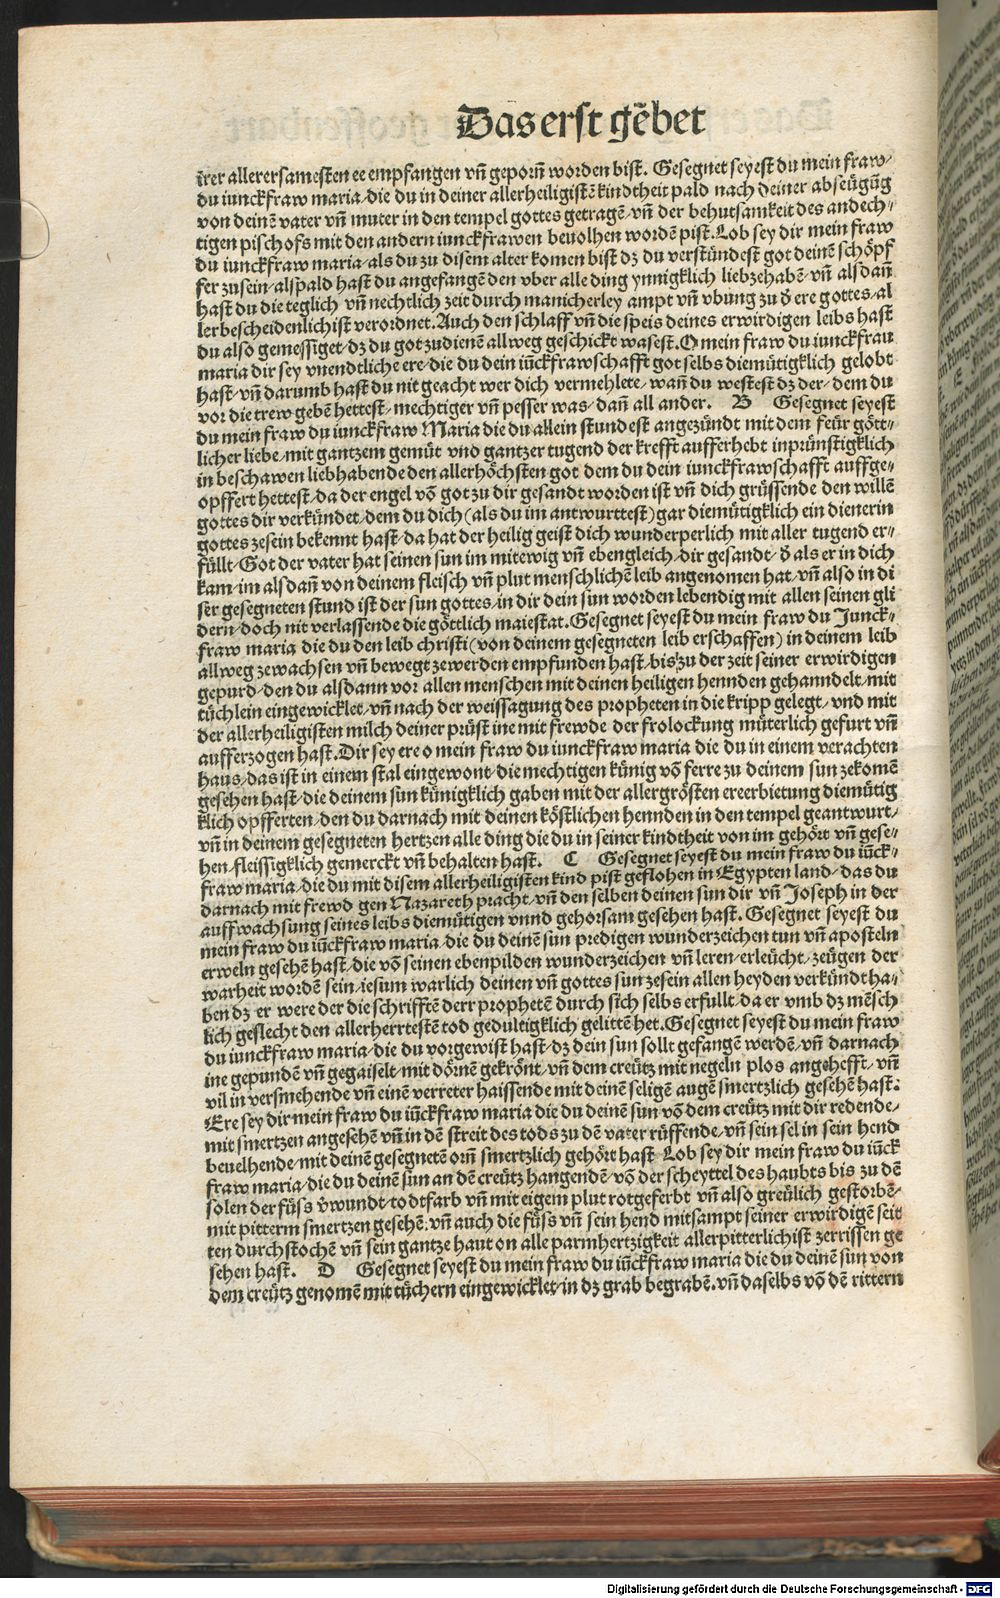 Das erst gebet
irer allerersamesten ee empfangen vñ geporñ worden bist. Gesegnet seyest du mein fraw/
du iunckfraw maria/die du in deiner allerheiligistē kindtheit pald nach deiner abseügūg
von deinē vater vñ muter in den tempel gottes getragē/vñ der behutsamkeit des andech/
tigen pischofs mit den andern iunckfrawen beuolhen wordē pist. Lob sey dir mein fraw
du iunckfraw maria/als du zu disem alter komen bist dz du verstündest got deinē schöpf
fer zu sein/alspald hast du angefangē den vber alle ding ynnigklich liebzehabē/vñ alsdañ
hast du die teglich vñ nechtlich zeit durch manicherley ampt vñ vbung zu d̄ ere gottes/al
lerbescheidenlichist verordnet. Auch den schlaff vñ die speis deines erwirdigen leibs hast
du also gemessiget/dz du got zudienē allweg geschickt wasest. O mein fraw du iunckfrau
maria dir sey vnendtliche ere/die du dein iūckfrawschafft got selbs diemütigklich gelobt
hast/vñ darumb hast du nit geacht wer dich vermehlete/wañ du westest dz der/dem du
vor die trew gebē hettest/mechtiger vñ pesser was/dañ all ander. B Gesegnet seyest
du mein fraw du iunckfraw Maria die du allein stundest angezündt mit dem feür gött/
licher liebe/mit gantzem gemüt vnd gantzer tugend der krefft aufferhebt inprünstigklich
in beschawen liebhabende den allerhöchsten got dem du dein iunckfrawschafft auffge/
opffert hettest/da der engel vō got zu dir gesandt worden ist vñ dich grüssende den willē
gottes dir verkündet/dem du dich (als du im antwurttest) gar diemütigklich ein dienerin
gottes zesein bekennt hast/da hat der heilig geist dich wunderperlich mit aller tugend er/
füllt/Got der vater hat seinen sun im mitewig vñ ebengleich/dir gesandt/d̄ als er in dich
kam/im alsdañ von deinem fleisch vñ plut menschlichē leib angenomen hat/vñ also in di
ser gesegneten stund ist der sun gottes/in dir dein sun worden lebendig mit allen seinen gli
dern/doch nit verlassende die göttlich maiestat. Gesegnet seyest du mein fraw du Junck/
fraw maria die du den leib christi (von deinem gesegneten leib erschaffen) in deinem leib
allweg zewachsen vñ bewegt zewerden empfunden hast/bis zu der zeit seiner erwirdigen
gepurd/den du alsdann vor allen menschen mit deinen heiligen hennden gehanndelt/mit
tüchlein eingewicklet/vñ nach der weissagung des propheten in die kripp gelegt/vnd mit
der allerheiligisten milch deiner prüst ine mit frewde der frolockung müterlich gefurt vñ
aufferzogen hast. Dir sey ere o mein fraw du iunckfraw maria die du in einem verachten
haus/das ist in einem stal eingewont/die mechtigen künig vō ferre zu deinem sun zekomē
gesehen hast/die deinem sun künigklich gaben mit der allergrösten ereerbietung diemütig
klich opfferten/den du darnach mit deinen köstlichen hennden in den tempel geantwurt/
vñ in deinem gesegneten hertzen alle ding die du in seiner kindtheit von im gehört vñ gese/
hen/fleissigklich gemerckt vñ behalten hast. C Gesegnet seyest du mein fraw du iūck/
fraw maria/die du mit disem allerheiligisten kind pist geflohen in Egypten land/das du
darnach mit frewd gen Nazareth pracht/vñ den selben deinen sun dir vñ Joseph in der
auffwachsung seines leibs diemütigen vnnd gehorsam gesehen hast. Gesegnet seyest du
mein fraw du iūckfraw maria/die du deinē sun predigen wunderzeichen tun vñ aposteln
erweln gesehē hast/die vō seinen ebenpilden wunderzeichen vñ leren/erleücht/zeügen der
warheit wordē sein/iesum warlich deinen vñ gottes sun zesein allen heyden verkündt ha/
ben dz er were der die schrifftē derr prophetē durch sich selbs erfullt/da er vmb dz mēsch
lich geslecht den allerherrtestē tod gedultigklich gelittē het. Gesegnet seyest du mein fraw
du iunckfraw maria/die du vorgewist hast/dz dein sun sollt gefangē werdē/vñ darnach
ine gepundē vñ gegaiselt/mit dörnē gekrönt/vñ dem creütz mit negeln plos angehefft/vñ
vil in versmehende vñ einē verreter haissende mit deinē seligē augē smertzlich gesehē hast.
Ere sey dir mein fraw du iūckfraw maria die du deinē sun vō dem creütz mit dir redende/
mit smertzen angesehē vñ in dē streit des tods zu dē vater rüffende/vñ sein sel in sein hend
beuelhende/mit deinē gesegnetē orñ smertzlich gehört hast. Lob sey dir mein fraw du iūck
fraw maria/die du deinē sun an dē creütz hangendē/vō der scheyttel des haubts bis zu dē
solen der füss v̄wundt/todtfarb vñ mit eigem plut rotgeferbt vñ also greülich gestorbē/
mit pitterm smertzen gesehē/vñ auch die füss vñ sein hend mitsampt seiner erwirdigē seit
ten durchstochē vñ sein gantze haut on alle parmhertzigkeit allerpitterlichist zerrissen ge
sehen hast. D Gesegnet seyest du mein fraw du iūckfraw maria die du deinē sun von
dem creütz genomē mit tüchern eingewicklet/in dz grab begrabē/vñ daselbs vō dē rittern
Digitalisierung gefördert durch die Deutsche Forschungsgemeinschaft - DFG